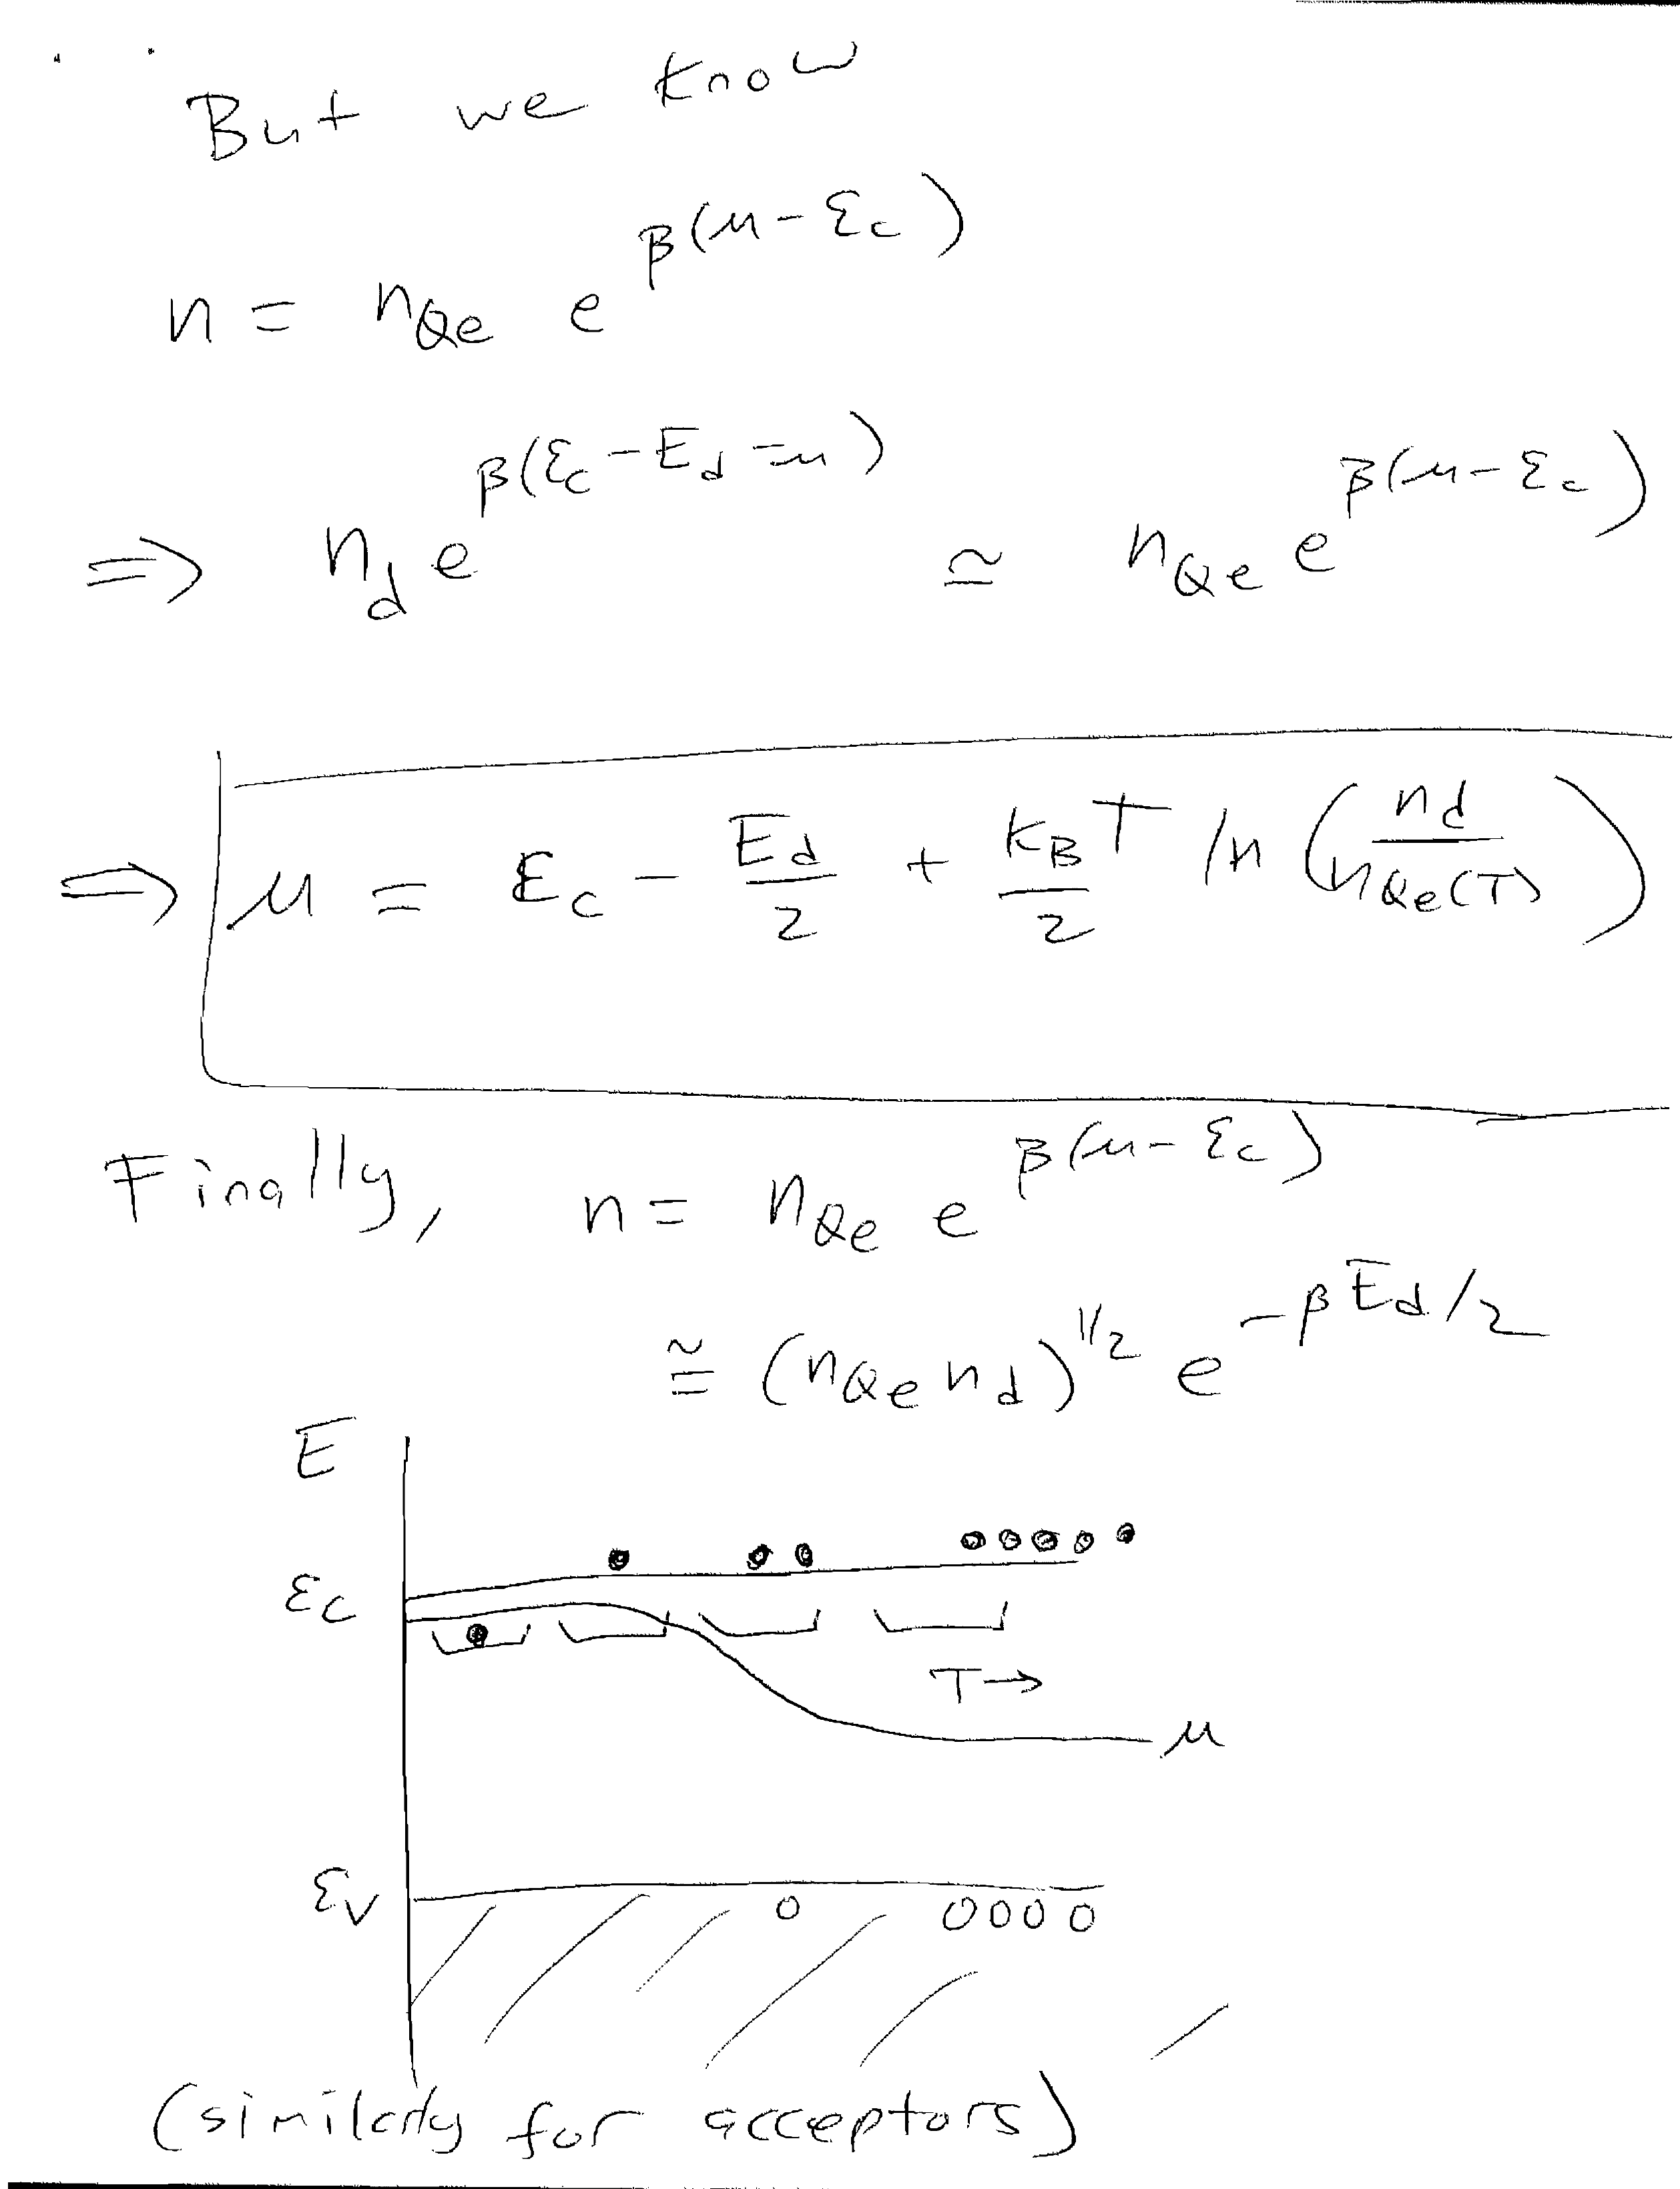 But we know
n = n_Qe e^β(μ-ε_c)
⇒ n_d e^β(ε_c-E_d-μ) ≃ n_Qe e^β(μ-ε_c)
⇒ μ = ε_c - E_d/2 + k_B T/2 ln (n_d/n_Qe(T))
Finally, n = n_Qe e^β(μ-ε_c)
≅ (n_Qe n_d)^1/2 e^-βE_d/2
E
ε_c
T→
μ
ε_v
(similarly for acceptors)